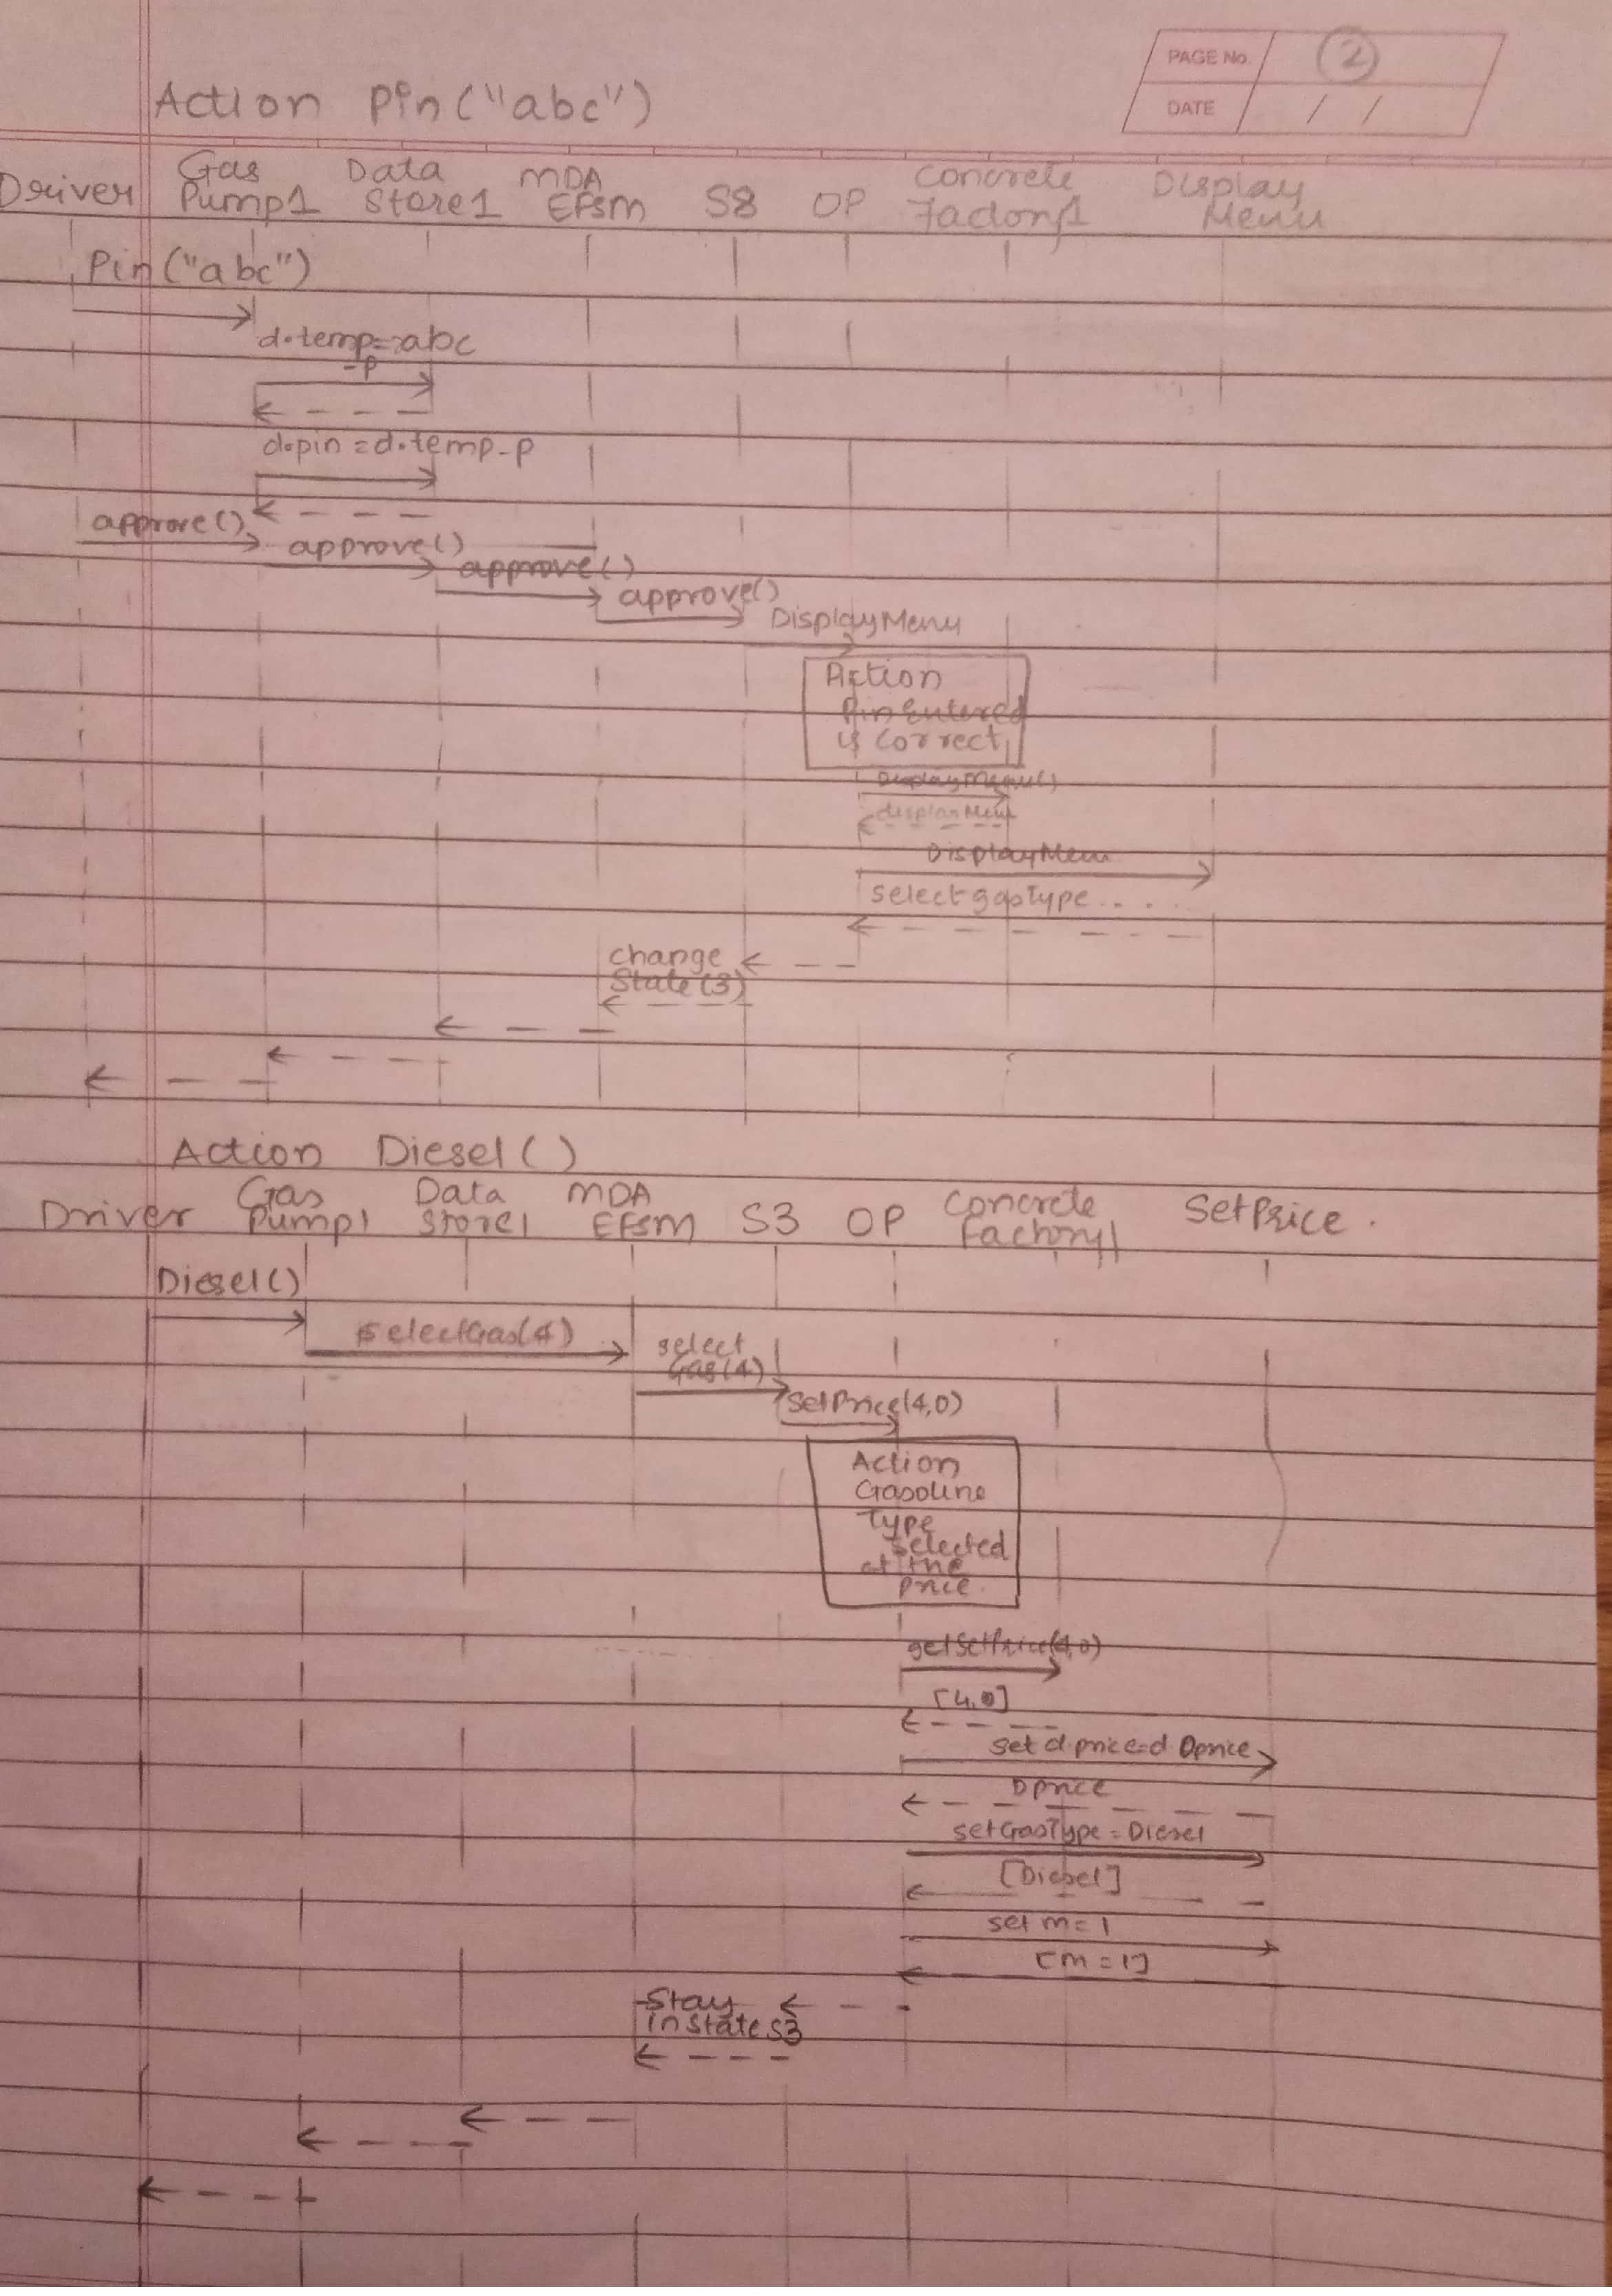 PAGE No. 2
DATE / /
Action Pin("abc")
Driver Gas Pump1 Data Store1 MDA EFSM S8 OP Concrete Factory1 Display Menu
Pin("abc")
d.temp=abc
-p
d.pin=d.temp-p
approve()
approve()
approve()
approve()
DisplayMenu
Action
Pin Entered
is Correct
DisplayMenu()
displayMenu
DisplayMenu
select gasType . . . .
change
State(3)
Action Diesel()
Driver Gas Pump1 Data Store1 MDA EFSM S3 OP Concrete Factory1 SetPrice.
Diesel()
selectGas(4)
select
Gas(4)
SetPrice(4,0)
Action
Gasoline
Type
Selected
at the
price.
getSetPrice(4,0)
[4,0]
set d.price=d.Dprice
Dprice
setGasType=Diesel
[Diesel]
set m=1
[m=1]
Stay
in state S3